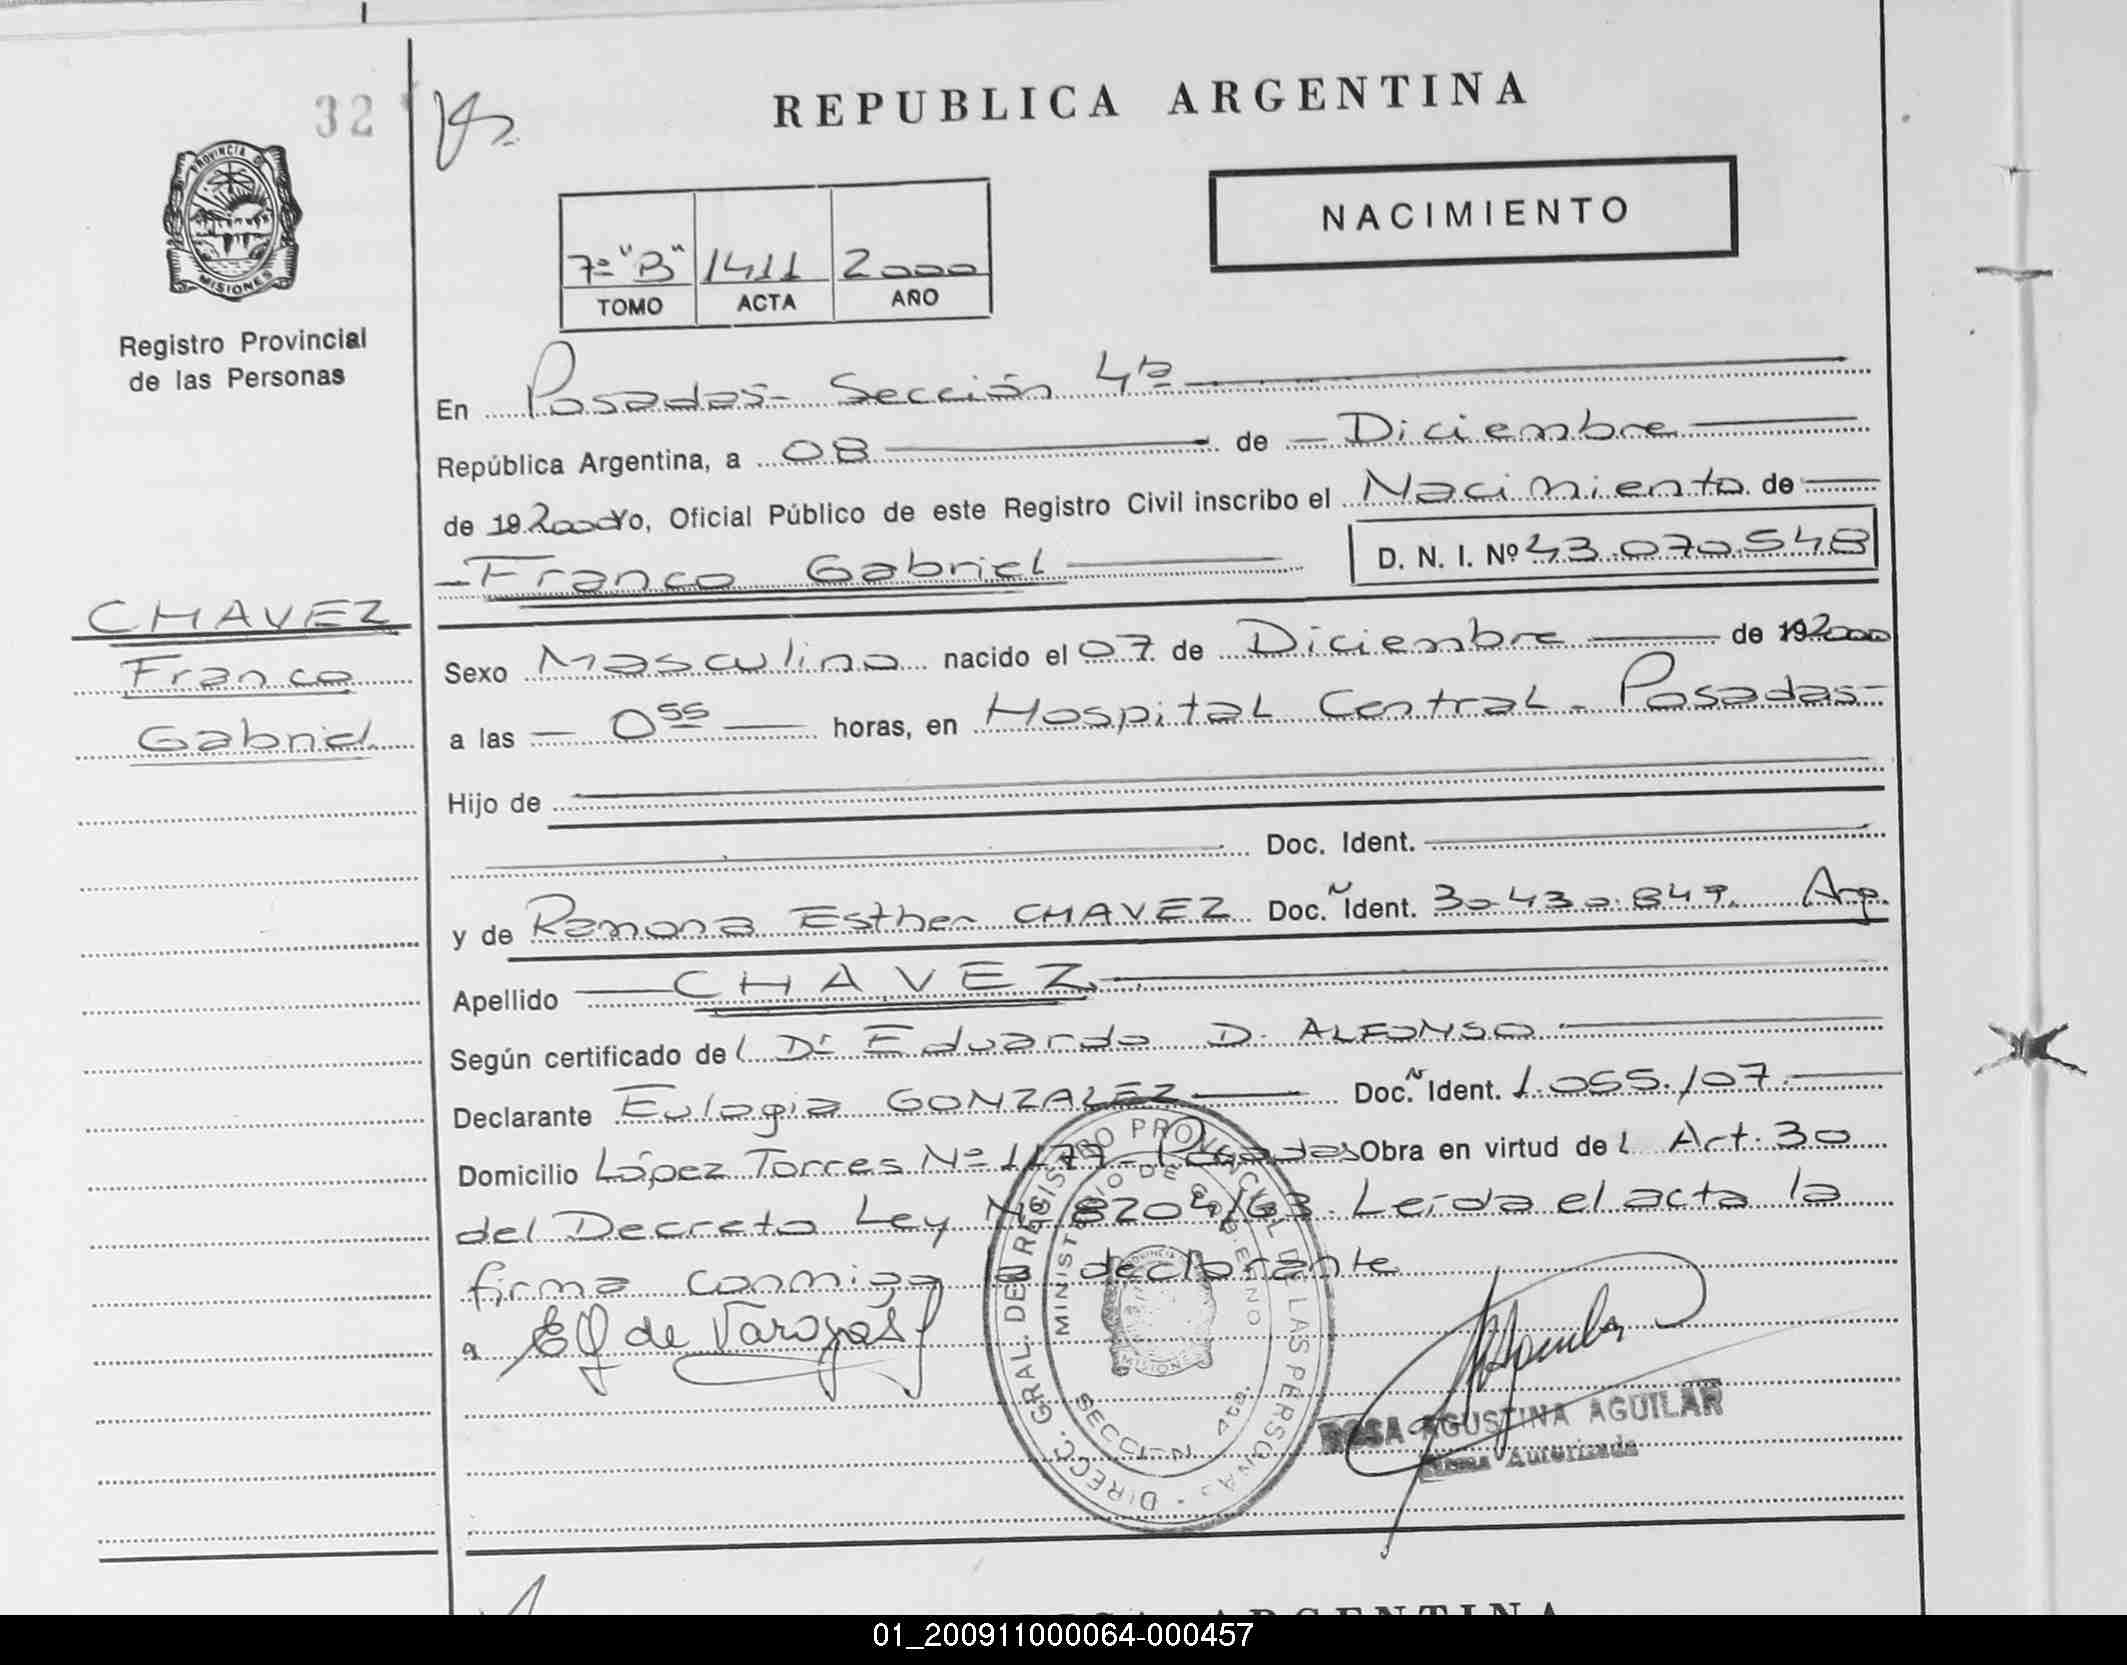 32
REPUBLICA ARGENTINA
PROVINCIA DE
MISIONES
Registro Provincial
de las Personas
NACIMIENTO
7º "B" 1411 2000
TOMO ACTA AÑO
En Posadas - Sección 4ta
República Argentina, a 08 de Diciembre
de 19 2000 Yo, Oficial Público de este Registro Civil inscribo el Nacimiento de
Franco Gabriel D. N. I. Nº 43.070.548
CHAVEZ
Franco
Gabriel
Sexo Masculino nacido el 07 de Diciembre de 19 2000
a las 0 55 horas, en Hospital Central - Posadas -
Hijo de
Doc. Ident.
y de Ramona Esther CHAVEZ Doc. Ident. 30.430.847. Arg.
Apellido CHAVEZ
Según certificado del Dr Eduardo D. ALFONSO
Declarante Eulogia GONZALEZ Doc. Ident. 1.055.107.
Domicilio López Torres Nº 1177 - Posadas Obra en virtud del Art. 30
del Decreto Ley Nº 8204/63. Leída el acta la
firma conmigo la declarante
EG de Vargas
DIRECC. GRAL. DEL REGISTRO PROVINCIAL DE LAS PERSONAS
MINISTERIO DE GOBIERNO
SECCION 4ta.
MISIONES
ROSA AGUSTINA AGUILAR
Firma Autorizada
ARGENTINA
01_200911000064-000457